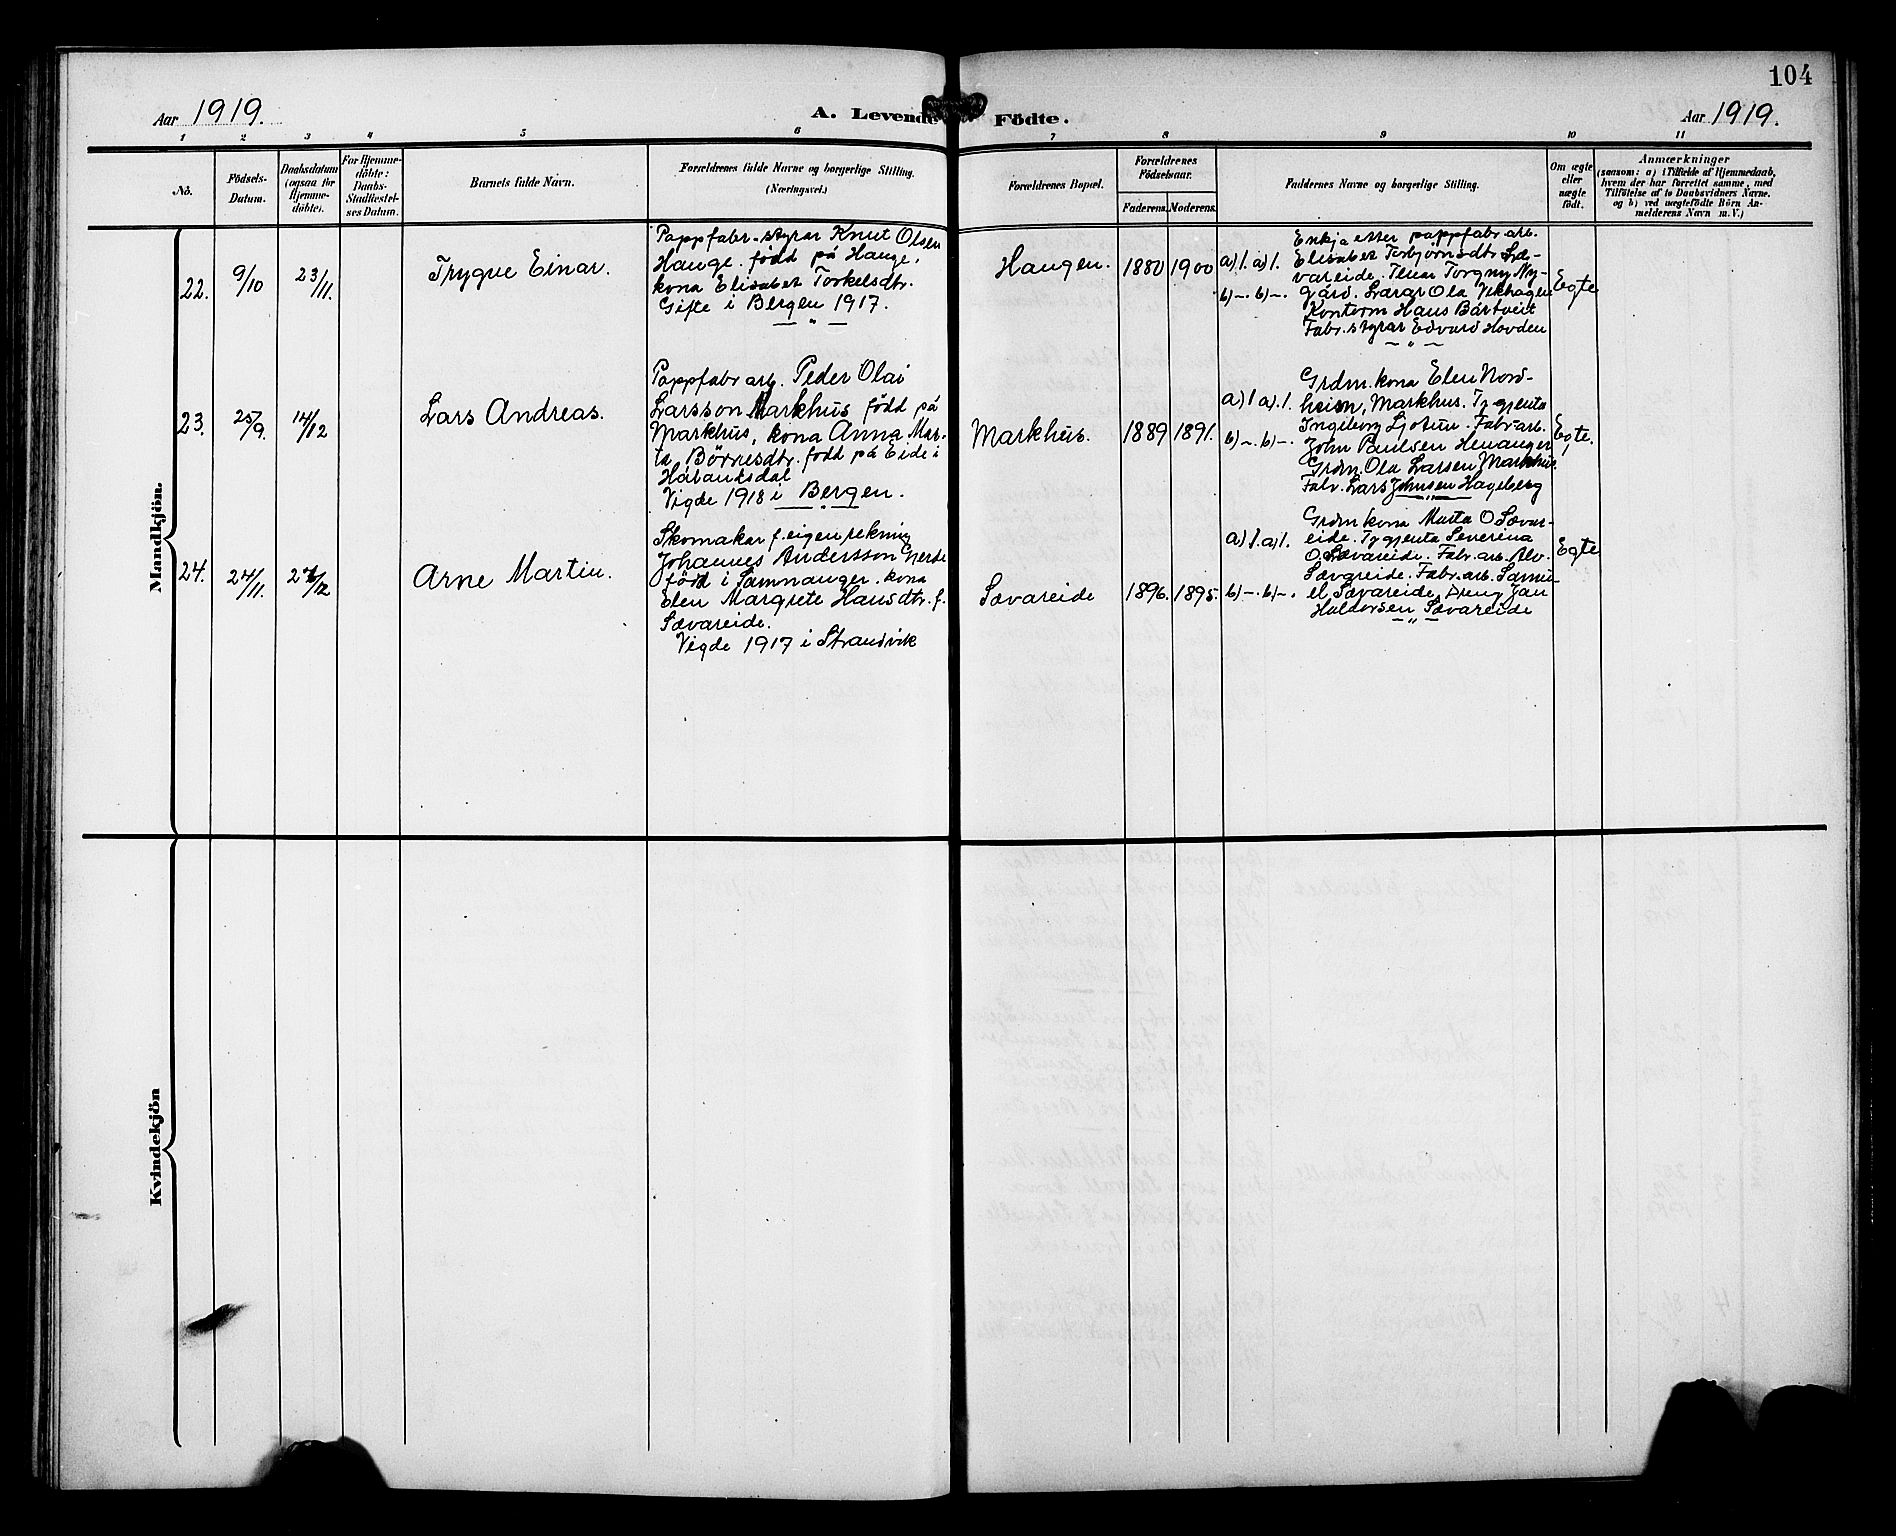 104
Aar 1919.
A. Levende Födte.
Aar 1919.
1 2 3 4 5 6 7 8 9 10 11
No.
Födsels-
Datum.
Daabsdatum
(ogsaa for
Hjemme-
döbte).
For Hjemme-
döbte:
Daabs-
Stadfæstel-
ses Datum.
Barnets fulde Navn.
Forældrenes fulde Navne og borgerlige Stilling.
(Næringsvei.)
Forældrenes Bopæl.
Forældrenes
Födselsaar.
Faderens. Moderens.
Faddernes Navne og borgerlige Stilling.
Om ægte
eller
uægte
födt.
Anmærkninger
(saasom: a) i Tilfælde af Hjemmedaab,
hvem der har forrettet samme, med
Tilföielse af to Daabsvidners Navne.
og b) ved uægtefödte Börn An-
melderens Navn m. V.)
Mandkjön.
22.
9/10
23/11.
Trygve Einar.
Pappfabr. styrar Knut Olsen
Hauge. född på Hauge,
kona Elisabet Torkelsdtr.
Gifte i Bergen 1917.
— " —
Haugen.
1880
1900
a) 1. a) 1.
b) —. b) —.
Enkja etter pappfabr. arb.
Elisabet Torbjörnsdtr Sæ-
vareide. Tenar Torgny Ny-
gård. Lærar Ola Vikhagen
Kontorm Hans Bårtveit
Fabr. styrar Edvard Hovden
— " —
Egte
23.
25/9.
14/12
Lars Andreas.
Pappfabr arb. Peder Olai
Larsson Markhus född på
Markhus, kona Anna Mar-
ta Börresdtr. född på Eide i
Hålandsdal
Vigde 1918 i Bergen.
— " —
Markhus.
1889
1891.
a) 1 a). 1.
b) —. b) —.
Grdm. kona Elen Nord-
heim, Markhus. Tygjenta
Ingeborg Ljotun. Fabr. arb.
John Paulsen Henanger
Grdm. Ola Larsen Markhus
Fabr. Lars Johnsen Hageberg
Egte.
24.
24/11.
27/12
Arne Martin.
Skomakar f. eigen rekning
Johannes Andersson Gjerde
född i Samnanger. kona
Elen Margrete Hansdtr. f.
Sævareide.
Vigde 1917 i Strandvik
Sævareide
1896.
1895.
a) 1. a) 1.
b) —. b) —.
Grdm kona Marta O Sævar-
eide. Tygjenta Severina
O. Sævareide. Fabr. arb. Alv.
Sævareide. Fabr. arb. Samu-
el Sævareide. Dreng Jan
Haldorsen Sævareide
— " —
Egte
Kvindekjön